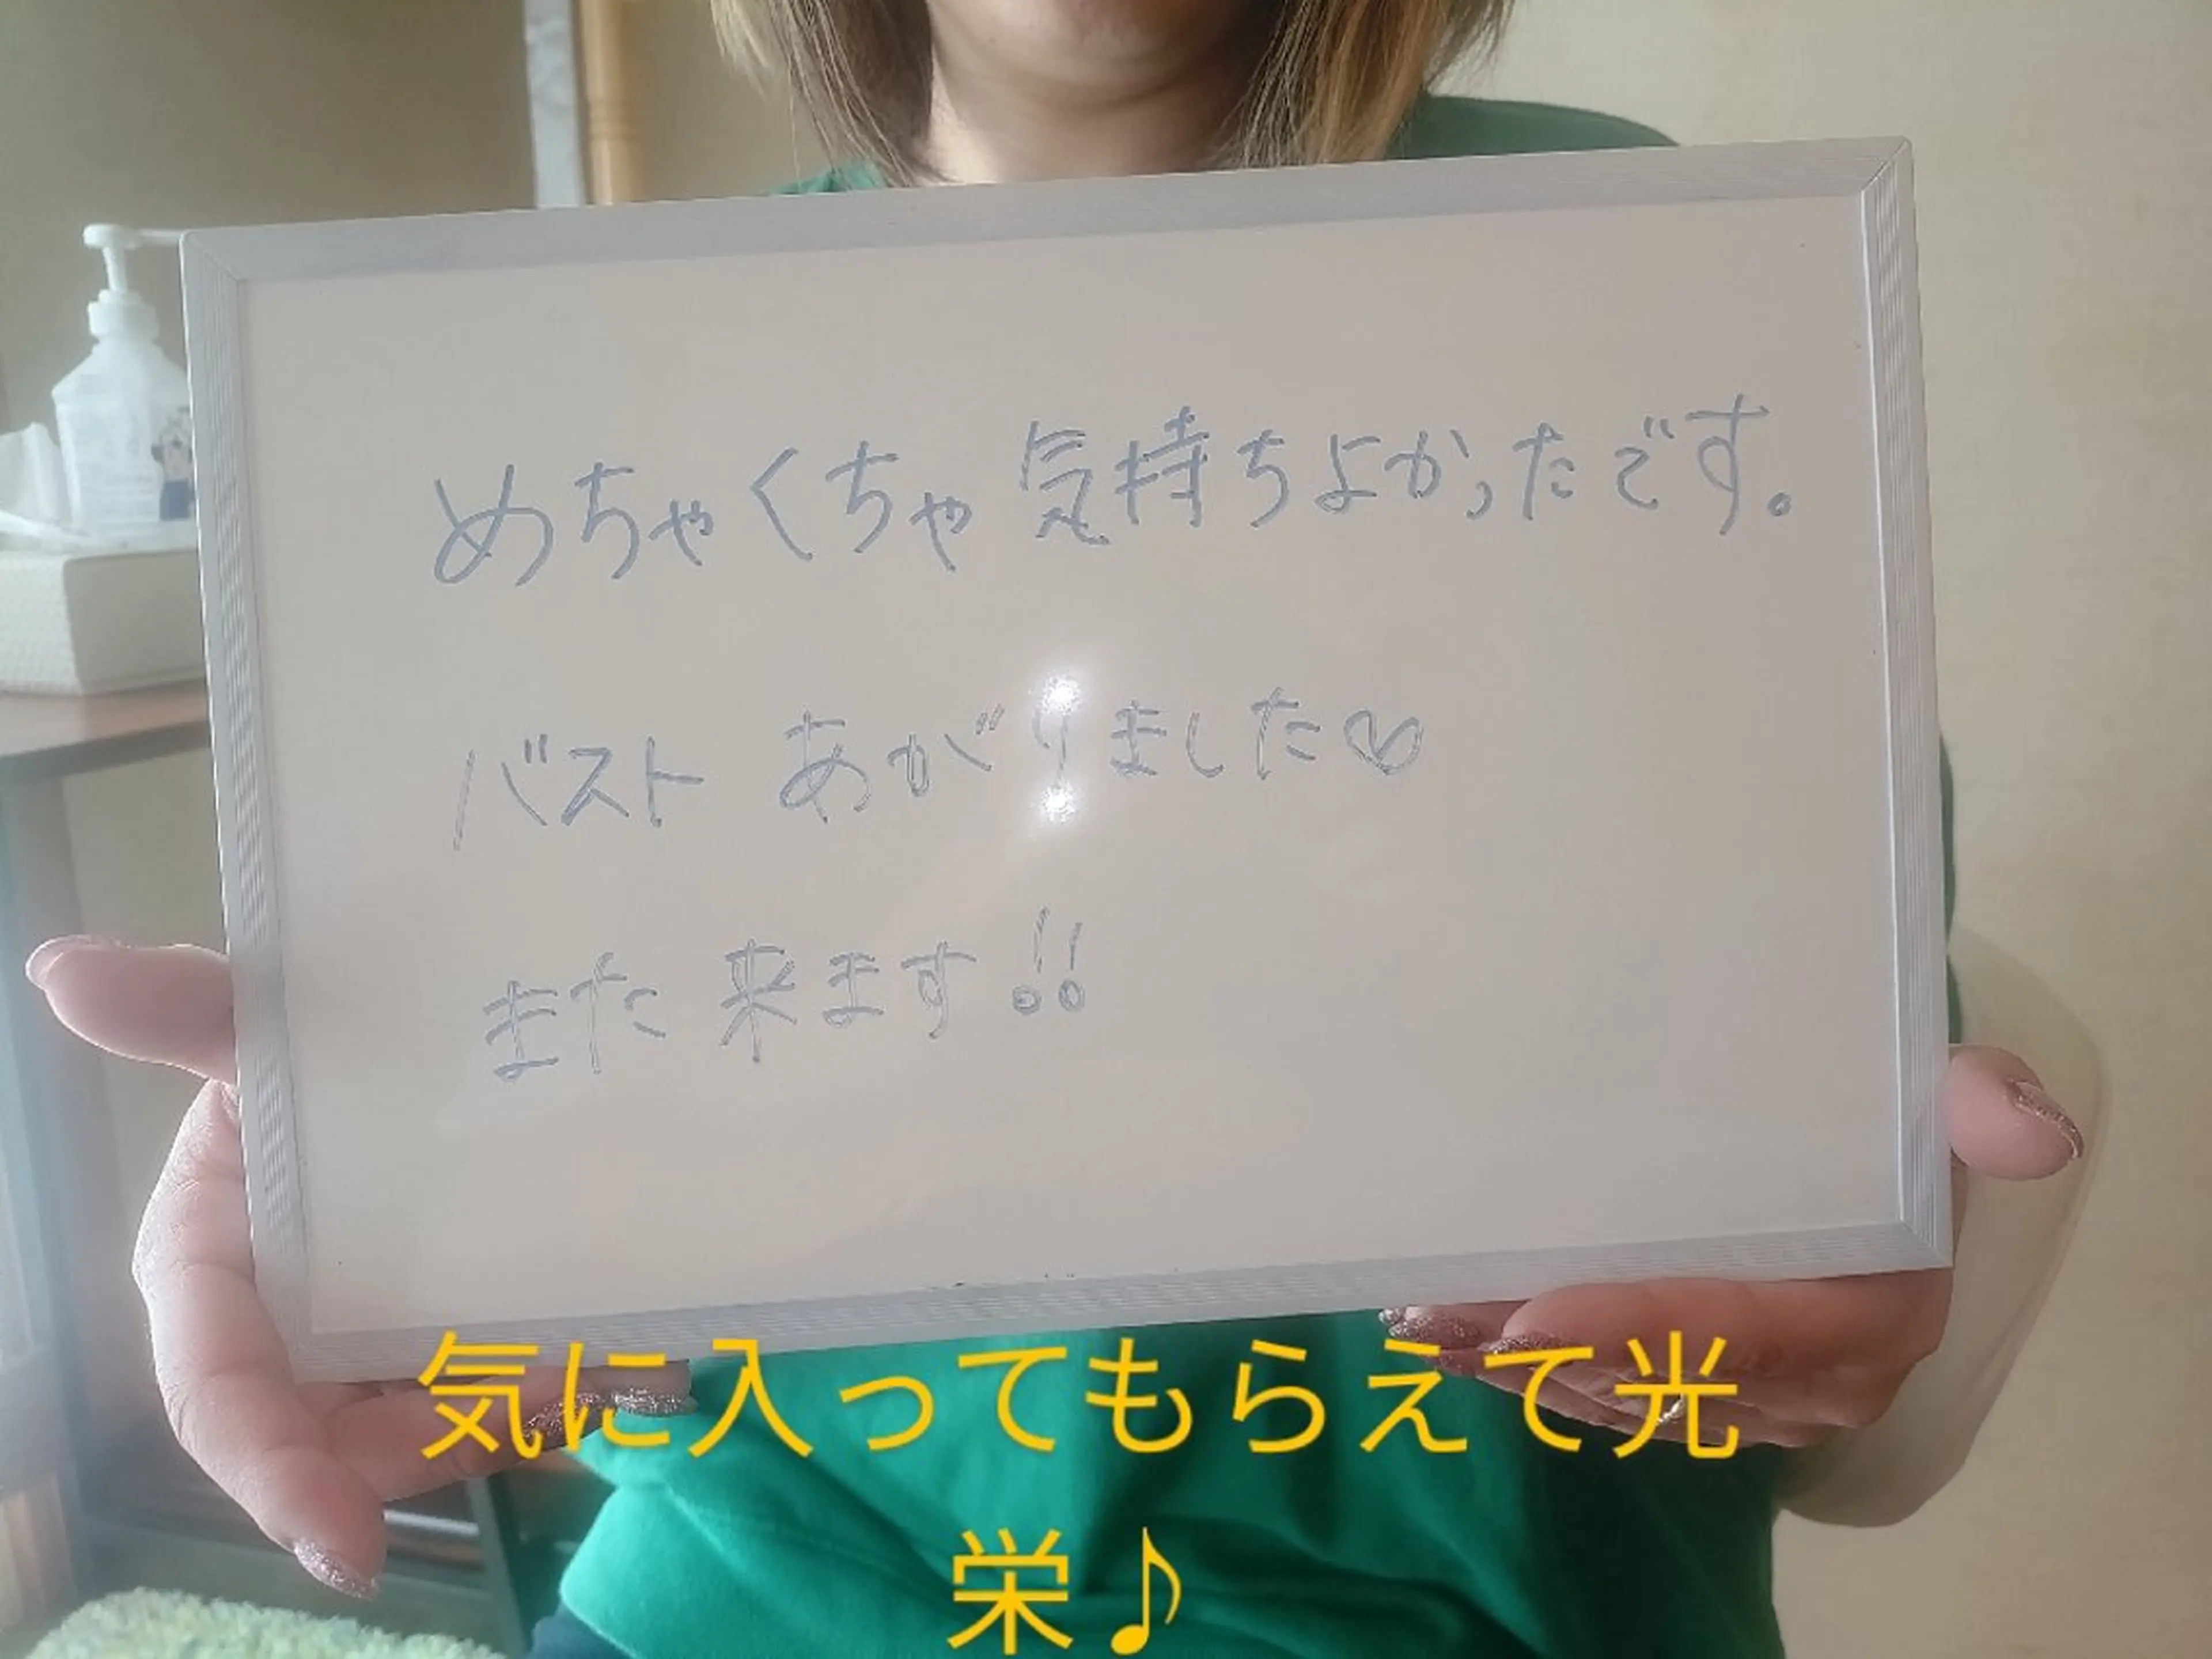 めちゃくちゃ気持ちよかったです。
バストあがりました♡
また来ます!!
気に入ってもらえて光
栄♪